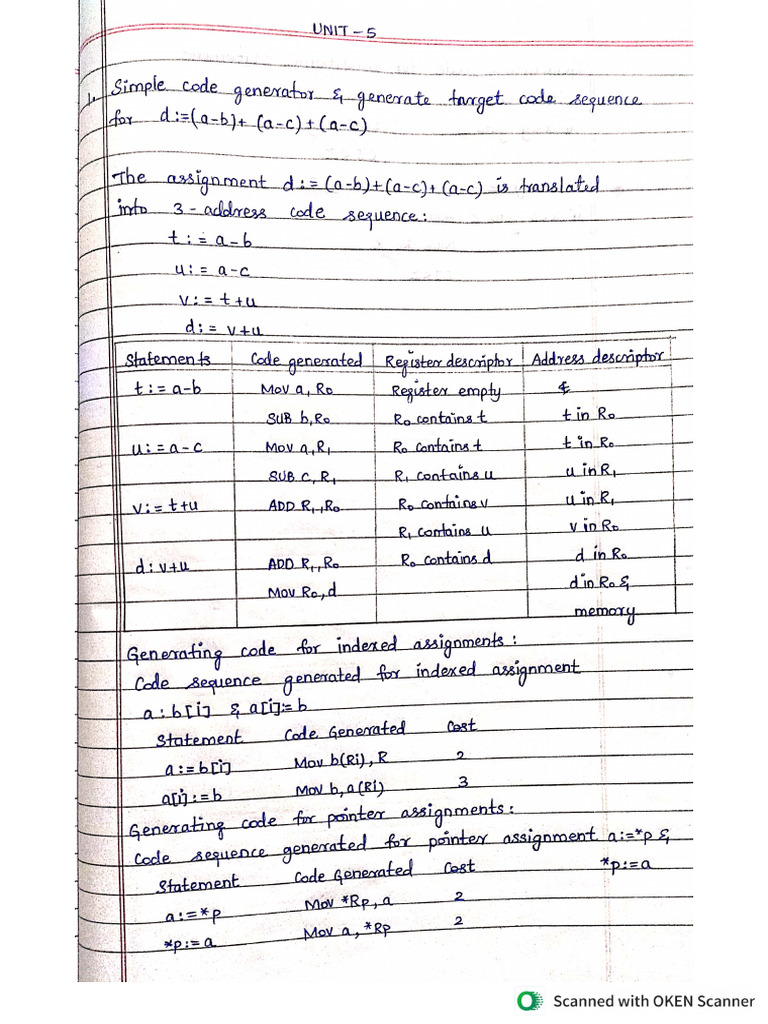 UNIT - 5
1. Simple code generator & generate target code sequence
for d:=(a-b)+(a-c)+(a-c)
The assignment d:=(a-b)+(a-c)+(a-c) is translated
into 3-address code sequence:
t:=a-b
u:=a-c
v:=t+u
d:=v+u
Statements Code generated Register descriptor Address descriptor
t:=a-b Mov a, R0 Register empty
SUB b,R0 R0 contains t t in R0
u:=a-c Mov a,R1 R0 contains t t in R0
SUB C, R1 R1 contains u u in R1
v:=t+u ADD R1,R0 R0 contains v u in R1
R1 contains u v in R0
d:v+u ADD R1,R0 R0 contains d d in R0
Mov R0,d d in R0 &
memory
Generating code for indexed assignments:
Code sequence generated for indexed assignment
a:b[i] & a[i]:=b
Statement Code Generated Cost
a:=b[i] Mov b(Ri), R 2
a[i]:=b Mov b,a(Ri) 3
Generating code for pointer assignments:
Code sequence generated for pointer assignment a:=*p &
*p:=a
Statement Code Generated Cost
a:=*p Mov *Rp,a 2
*p:=a Mov a,*Rp 2
Scanned with OKEN Scanner